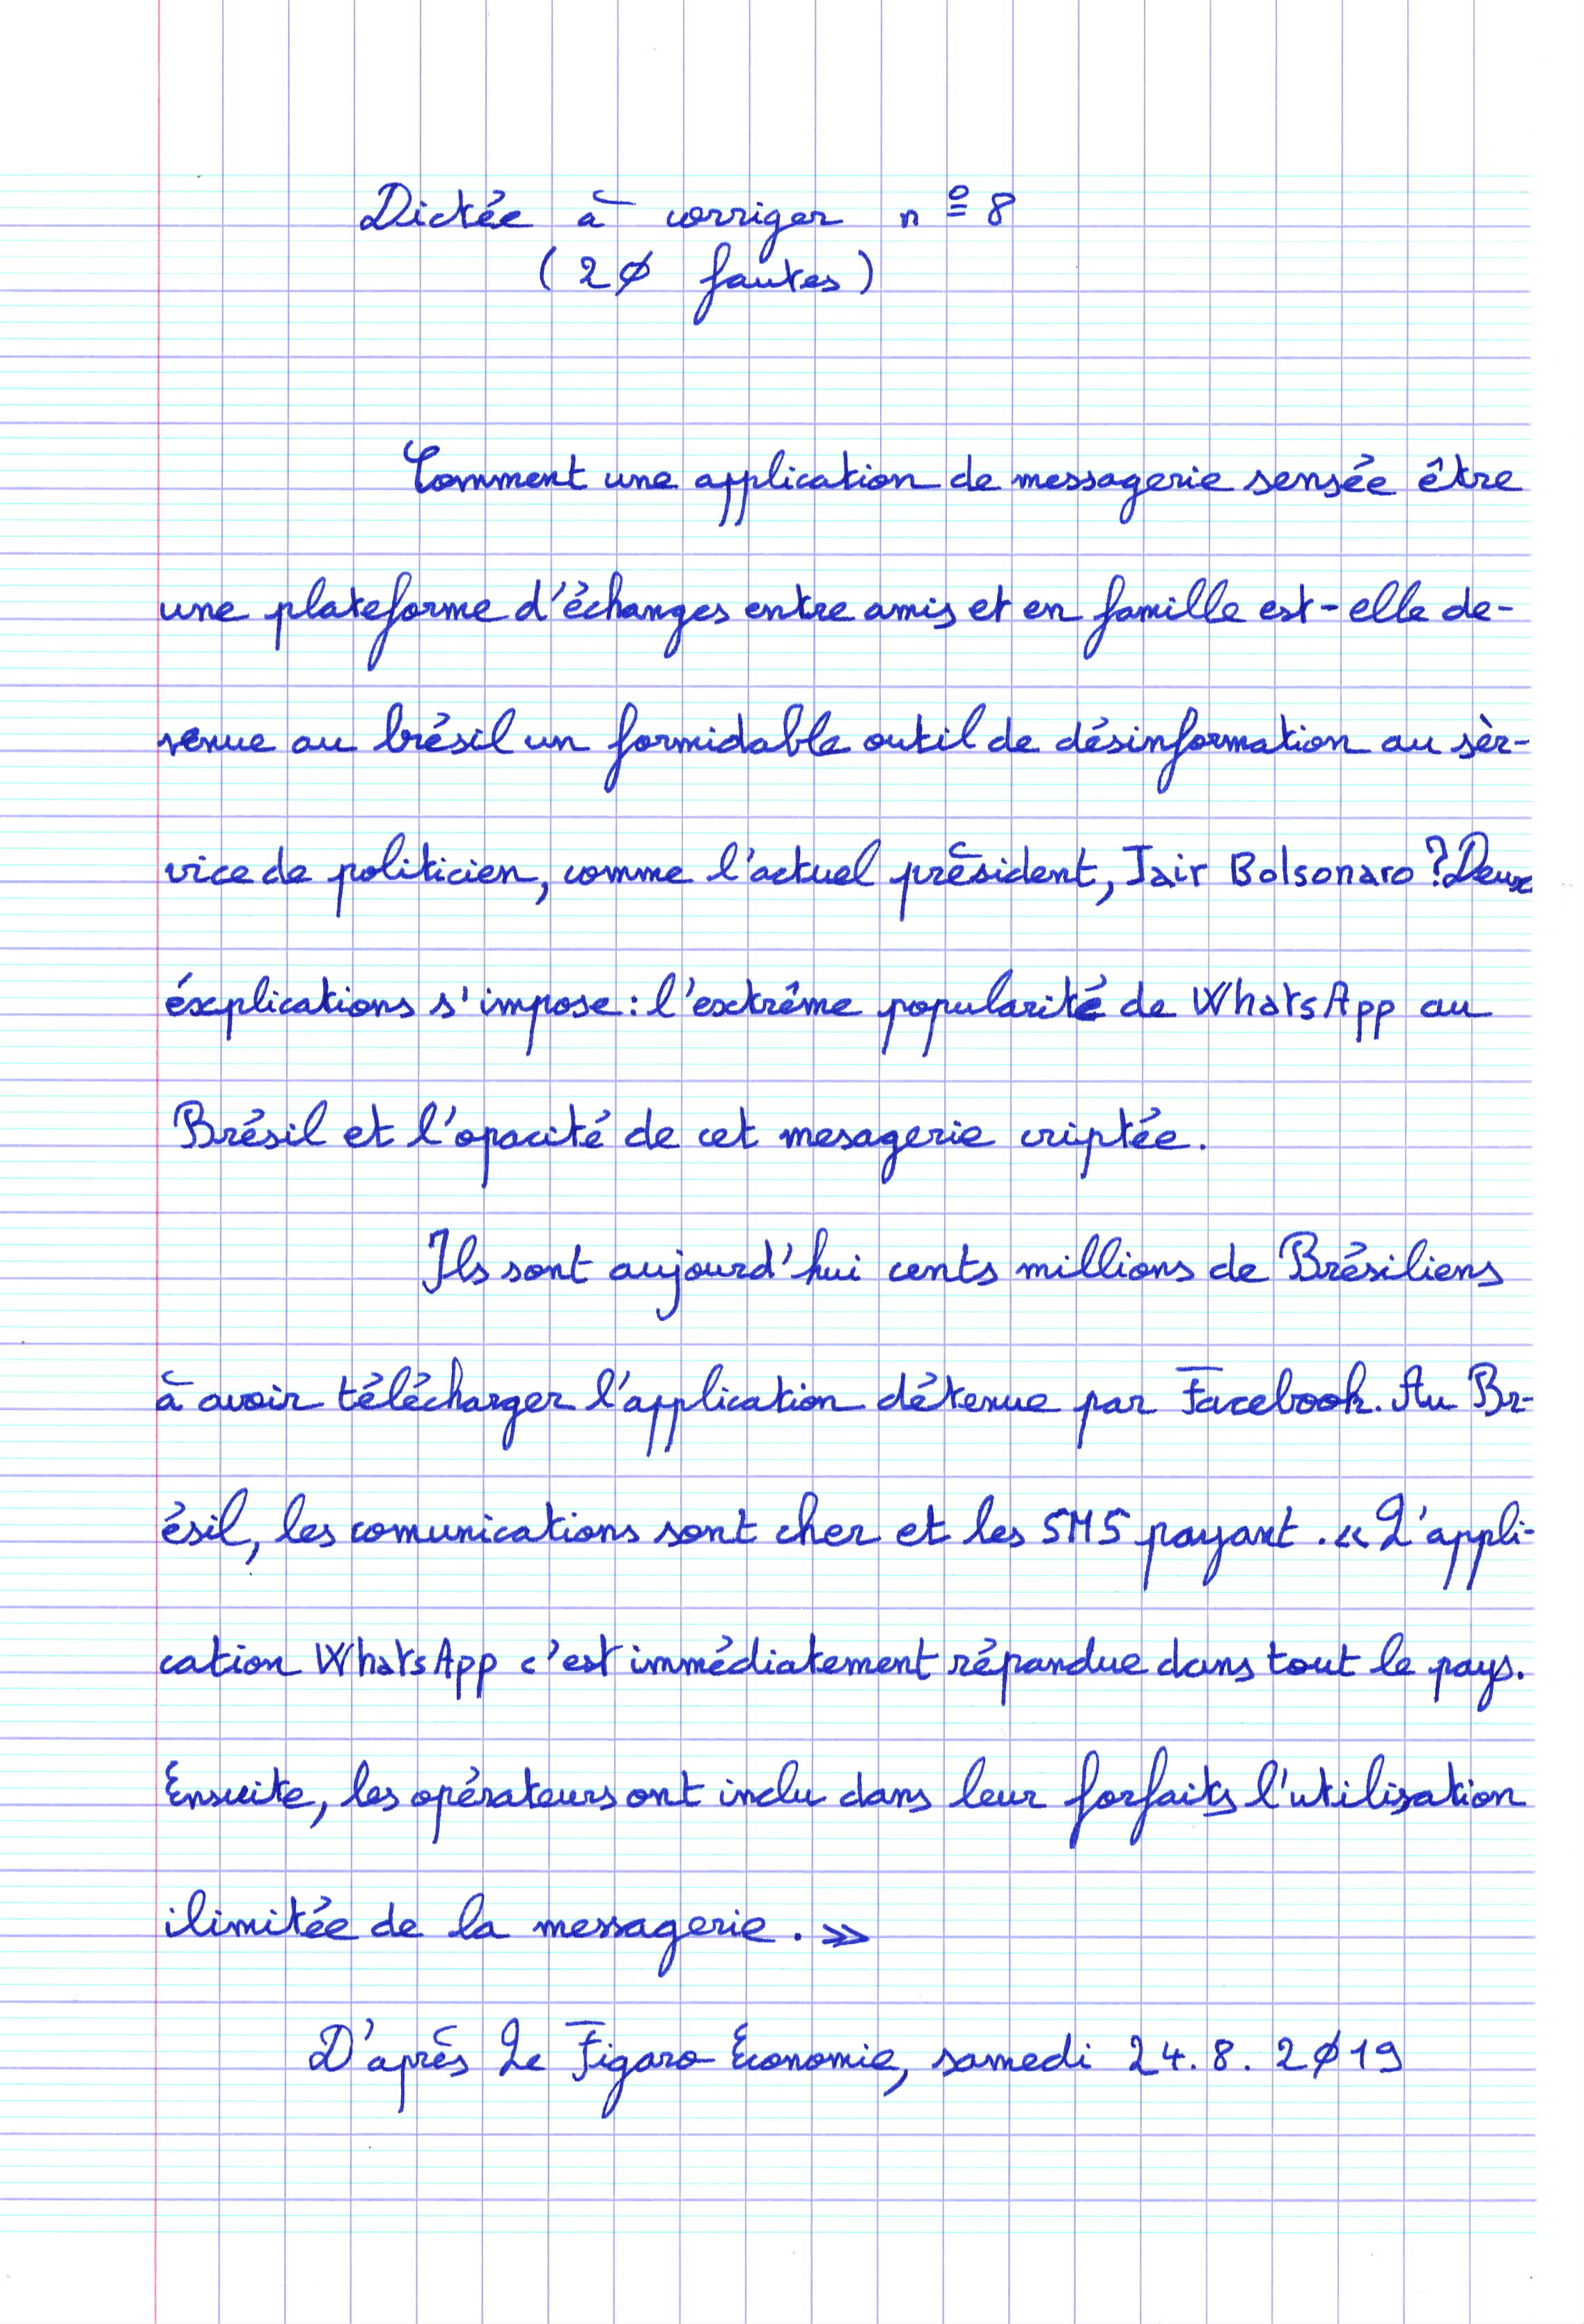 Dictée à corriger nº 8
(20 fautes)
Comment une application de messagerie sensée être
une plateforme d'échanges entre amis et en famille est-elle de-
venue au brésil un formidable outil de désinformation au sèr-
vice de politicien, comme l'actuel président, Jair Bolsonaro ? Deux
éxplications s'impose : l'extrême popularité de WhatsApp au
Brésil et l'opacité de cet mesagerie criptée.
Ils sont aujourd'hui cents millions de Brésiliens
à avoir télécharger l'application détenue par Facebook. Au Br-
ésil, les comunications sont cher et les SMS payant. « L'appli-
cation WhatsApp c'est immédiatement répandue dans tout le pays.
Ensuite, les opérateurs ont inclu dans leur forfaits l'utilisation
ilimitée de la messagerie. »
D'après Le Figaro Économie, samedi 24.8.2019